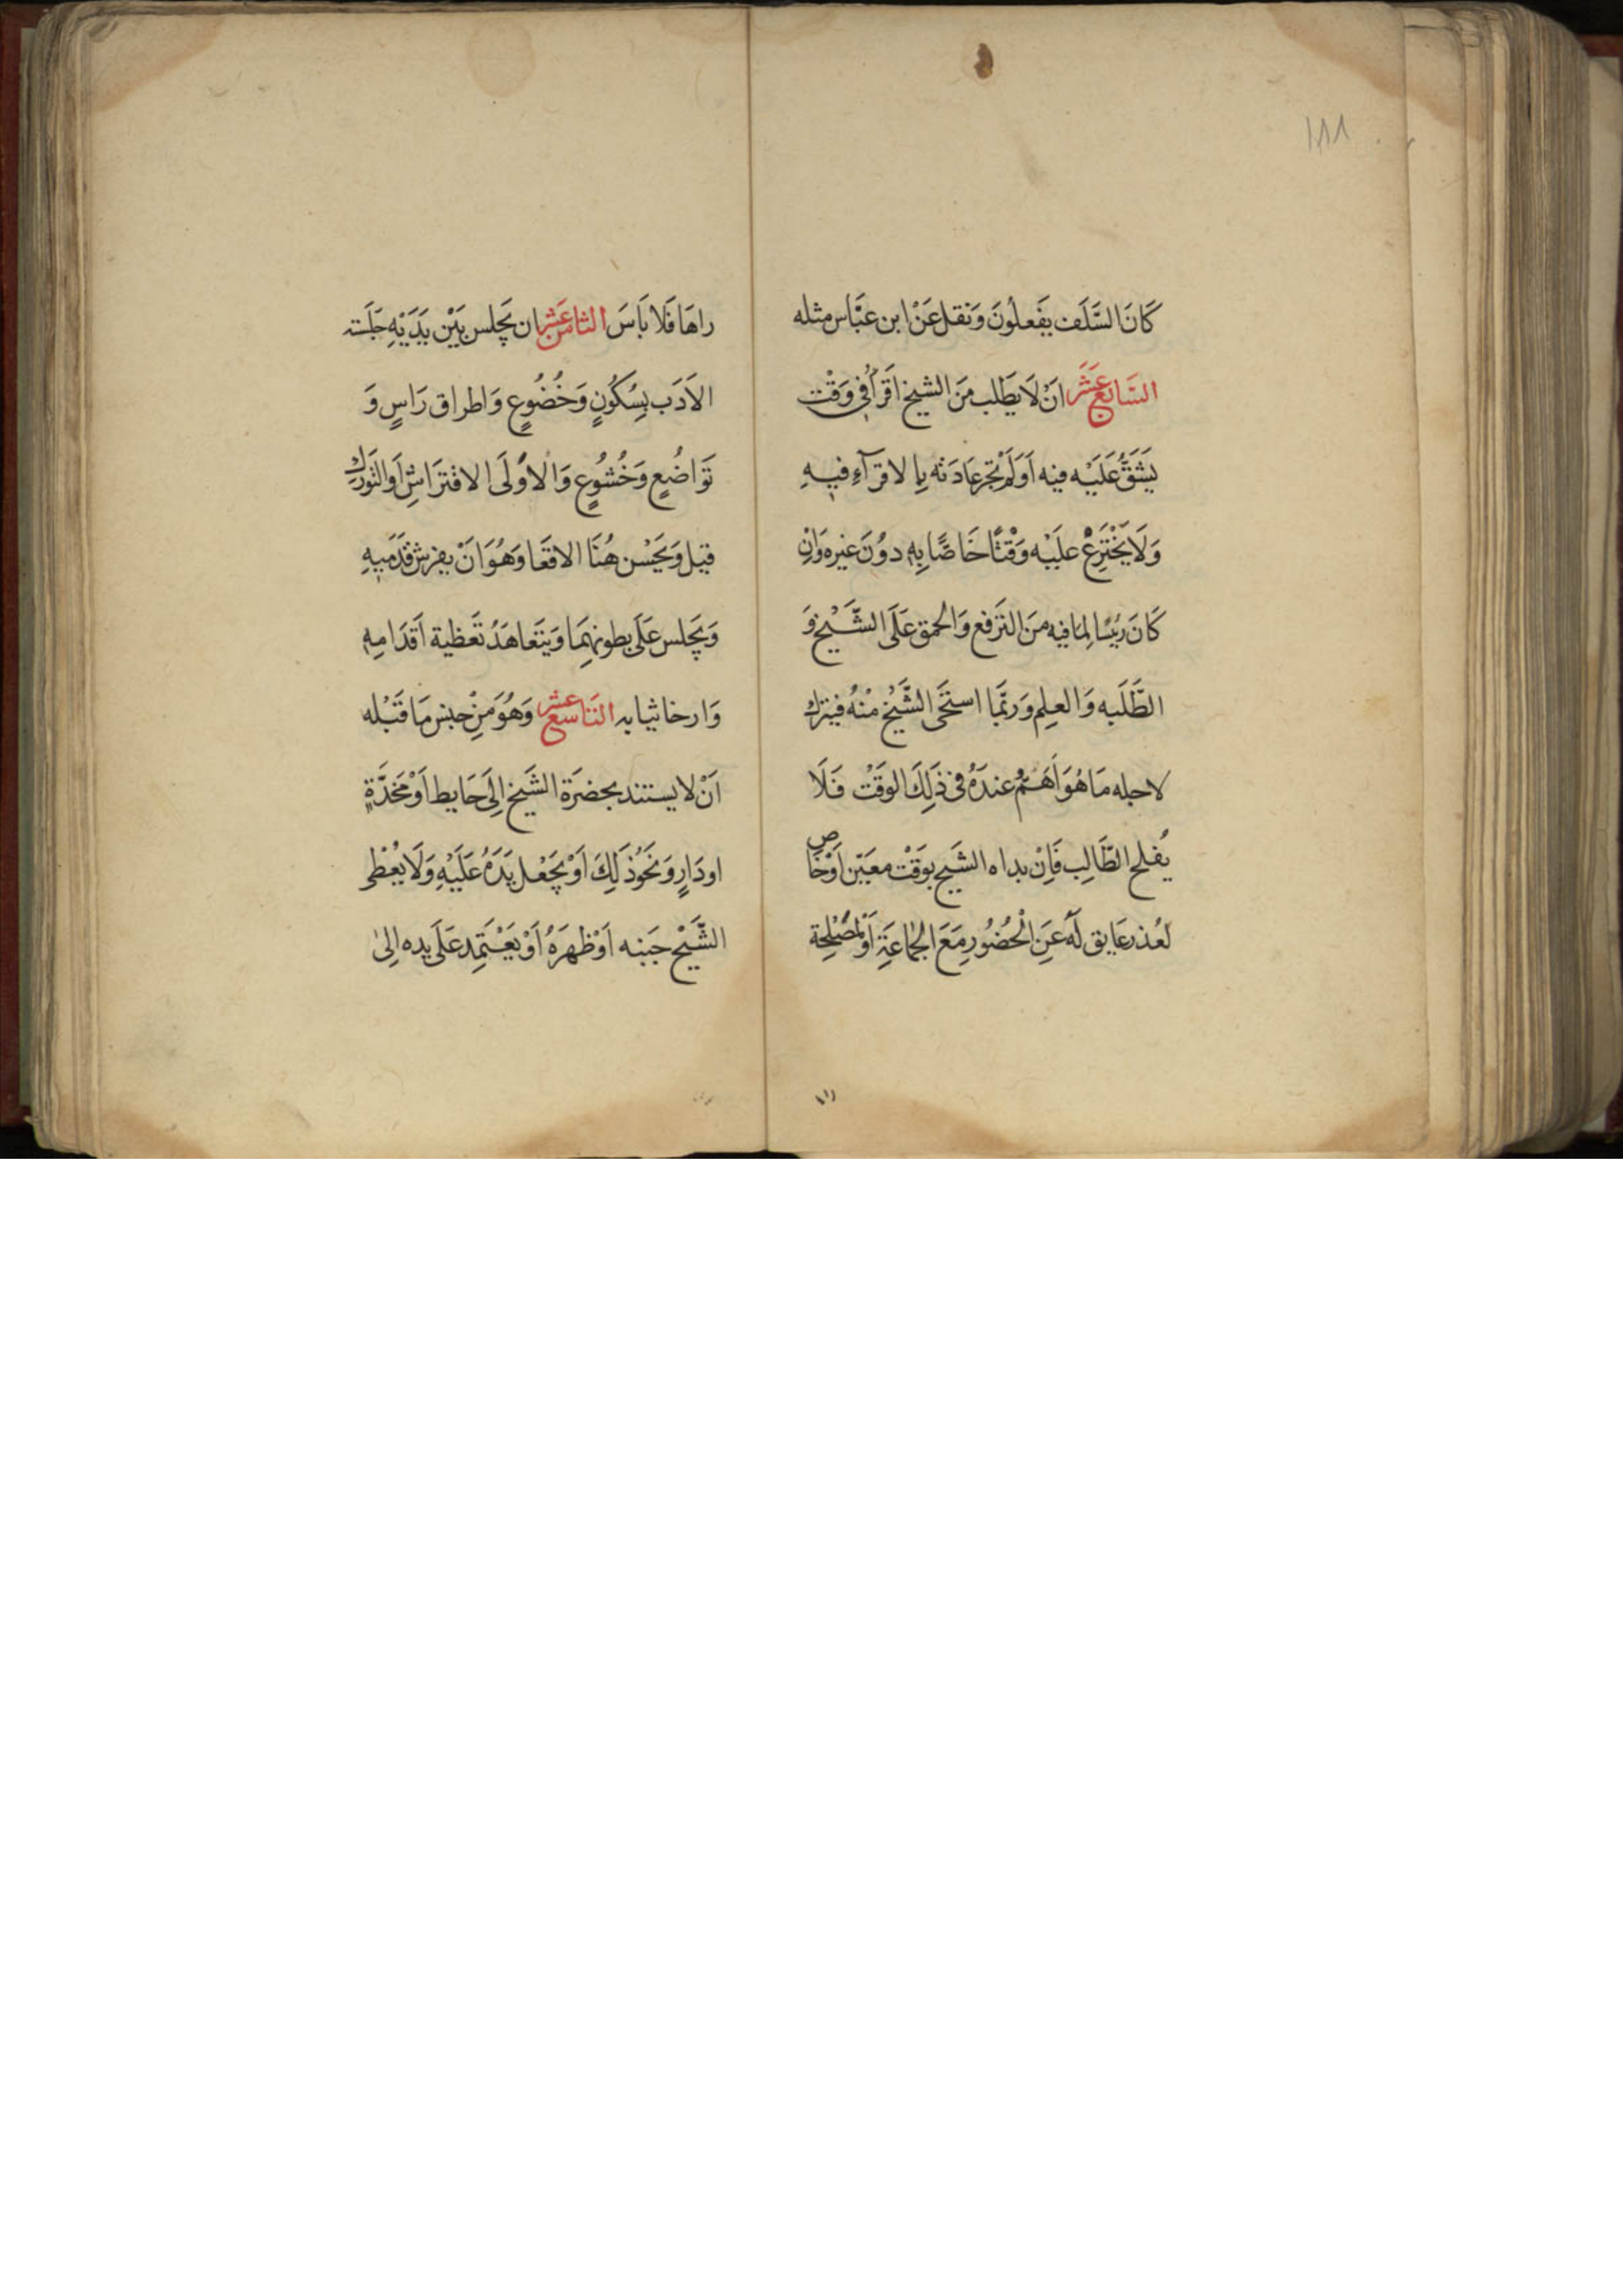 ١٨٨
كَانَ السَّلَف يَفَعلُونَ وَنقل عَنْ ابن عبَّاس مثله
السَّابع عَشَر اَنْ لَا يَطَلب مِنَ الشيخ اَقرَاً فِي وَقْت
يَشَقُّ عَلَيْه فيه اَوَلَمْ تَجر عَادَته بِالاقرَآءِ فيهِ
وَلَا يَخْتَرِعْ عليْه وَقْتًا خَاصًّا بِهِ دوُنَ غيره وَاِنْ
كَانَ رَئيسًا لِمَا فيه مِنَ التَرَفع وَالحمق عَلَى الشَّيْخ وَ
الطَّلَبه وَالعلِم وَربَّمَا استحَى الشَّيْخ مِنْهُ فيترك
لاجله مَا هُوَ اَهَمُّ عندَهُ فى ذَلِكَ الوَقَتْ فَلَا
يُفلح الطَّالِب فَاِنْ بداه الشَيخ بوَقَتْ معَيّن اَوْ خَاص
لعُذر عَايق لَهُ عَنِ الْحُضُورِ مَعَ الجُمَاعَةِ اَوْ لمصْلِحة
راهَا فَلا بَاَسَ الثامن عَشر ان يَجلس بَيْن يَدَيْهِ جَلَسَة
الاَدَب بِسُكُونٍ وَخُضُوعٍ وَاطراق رَاسٍ وَ
تَوَاضُعٍ وَخُشوُعٍ وَالاَوْلَى الافترَاشِ اَوالتَوَرك
قيل وَيَحَسْن هُنَا الاقعَا وَهُوَ اَنْ يفرش قَدَمَيهِ
وَيَجلس عَلَى بطونهِمَا وَيَتَعاهَدُ تَغَطية اَقدَامِهِ
وَارخا ثيابه التَاسع عشر وَهُوَ مِنْ جنس مَا قَبْله
اَنْ لا يستند بحضرَة الشَيخ اِلَى حَايط اَوْ مخَدَّةٍ
او دَارٍ وَنَحَوْ ذَلِكَ اَوْ يَجَعْل يَدَهُ عَلَيْهِ وَلَا يعُطى
الشَّيْخ جَنبه اَوْ ظهرَهُ اَوْ يَعْتَمِد عَلَى يده اِلىٰ